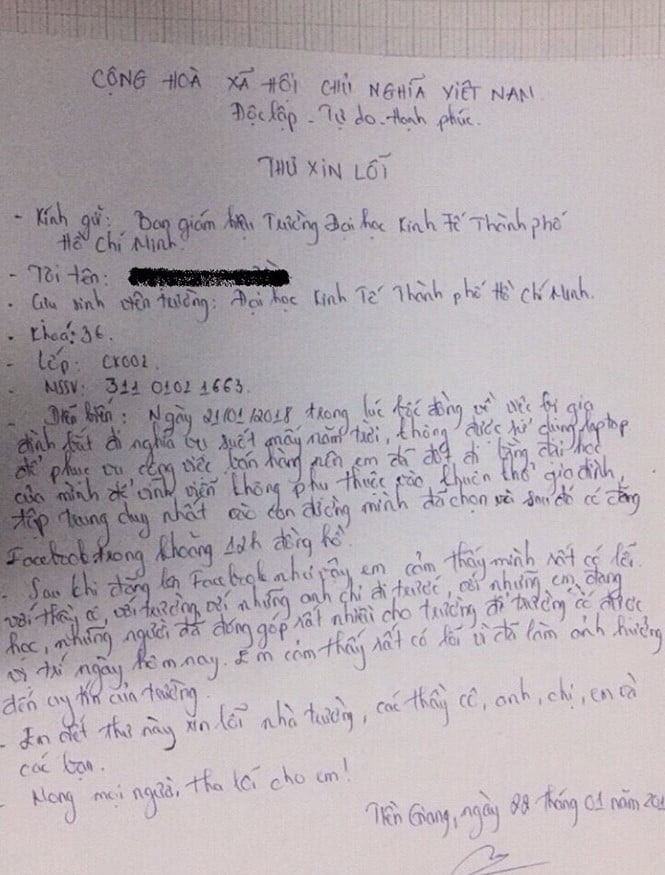 CỘNG HOÀ XÃ HỘI CHỦ NGHĨA VIỆT NAM
Độc lập - Tự do - Hạnh phúc.
THƯ XIN LỖI
- Kính gửi: Ban giám hiệu Trường Đại học Kinh Tế Thành phố
Hồ Chí Minh.
- Tôi tên:
- Cựu sinh viên trường: Đại học Kinh Tế Thành phố Hồ Chí Minh.
- Khoá: 36.
- Lớp: CK002.
- MSSV: 311 0102 1663.
- Diễn biến: Ngày 21/01/2018 trong lúc bốc đồng về việc bị gia
đình bắt đi nghĩa vụ suốt mấy năm trời, không được sử dụng laptop
để phục vụ công việc bán hàng nên em đã đốt đi bằng đại học
của mình để vĩnh viễn không phụ thuộc vào khuôn khổ gia đình,
tập trung duy nhất vào con đường mình đã chọn và sau đó có đăng
Facebook trong khoảng 12h đồng hồ.
- Sau khi đăng lên Facebook như vậy em cảm thấy mình rất có lỗi
với thầy cô, với trường, với những anh chị đi trước, với những em đang
học, những người đã đóng góp rất nhiều cho trường để trường có được
vị trí ngày hôm nay. Em cảm thấy rất có lỗi vì đã làm ảnh hưởng
đến uy tín của trường.
- Em viết thư này xin lỗi nhà trường, các thầy cô, anh, chị, em và
các bạn.
- Mong mọi người tha lỗi cho em!
Tiền Giang, ngày 22 tháng 01 năm 201